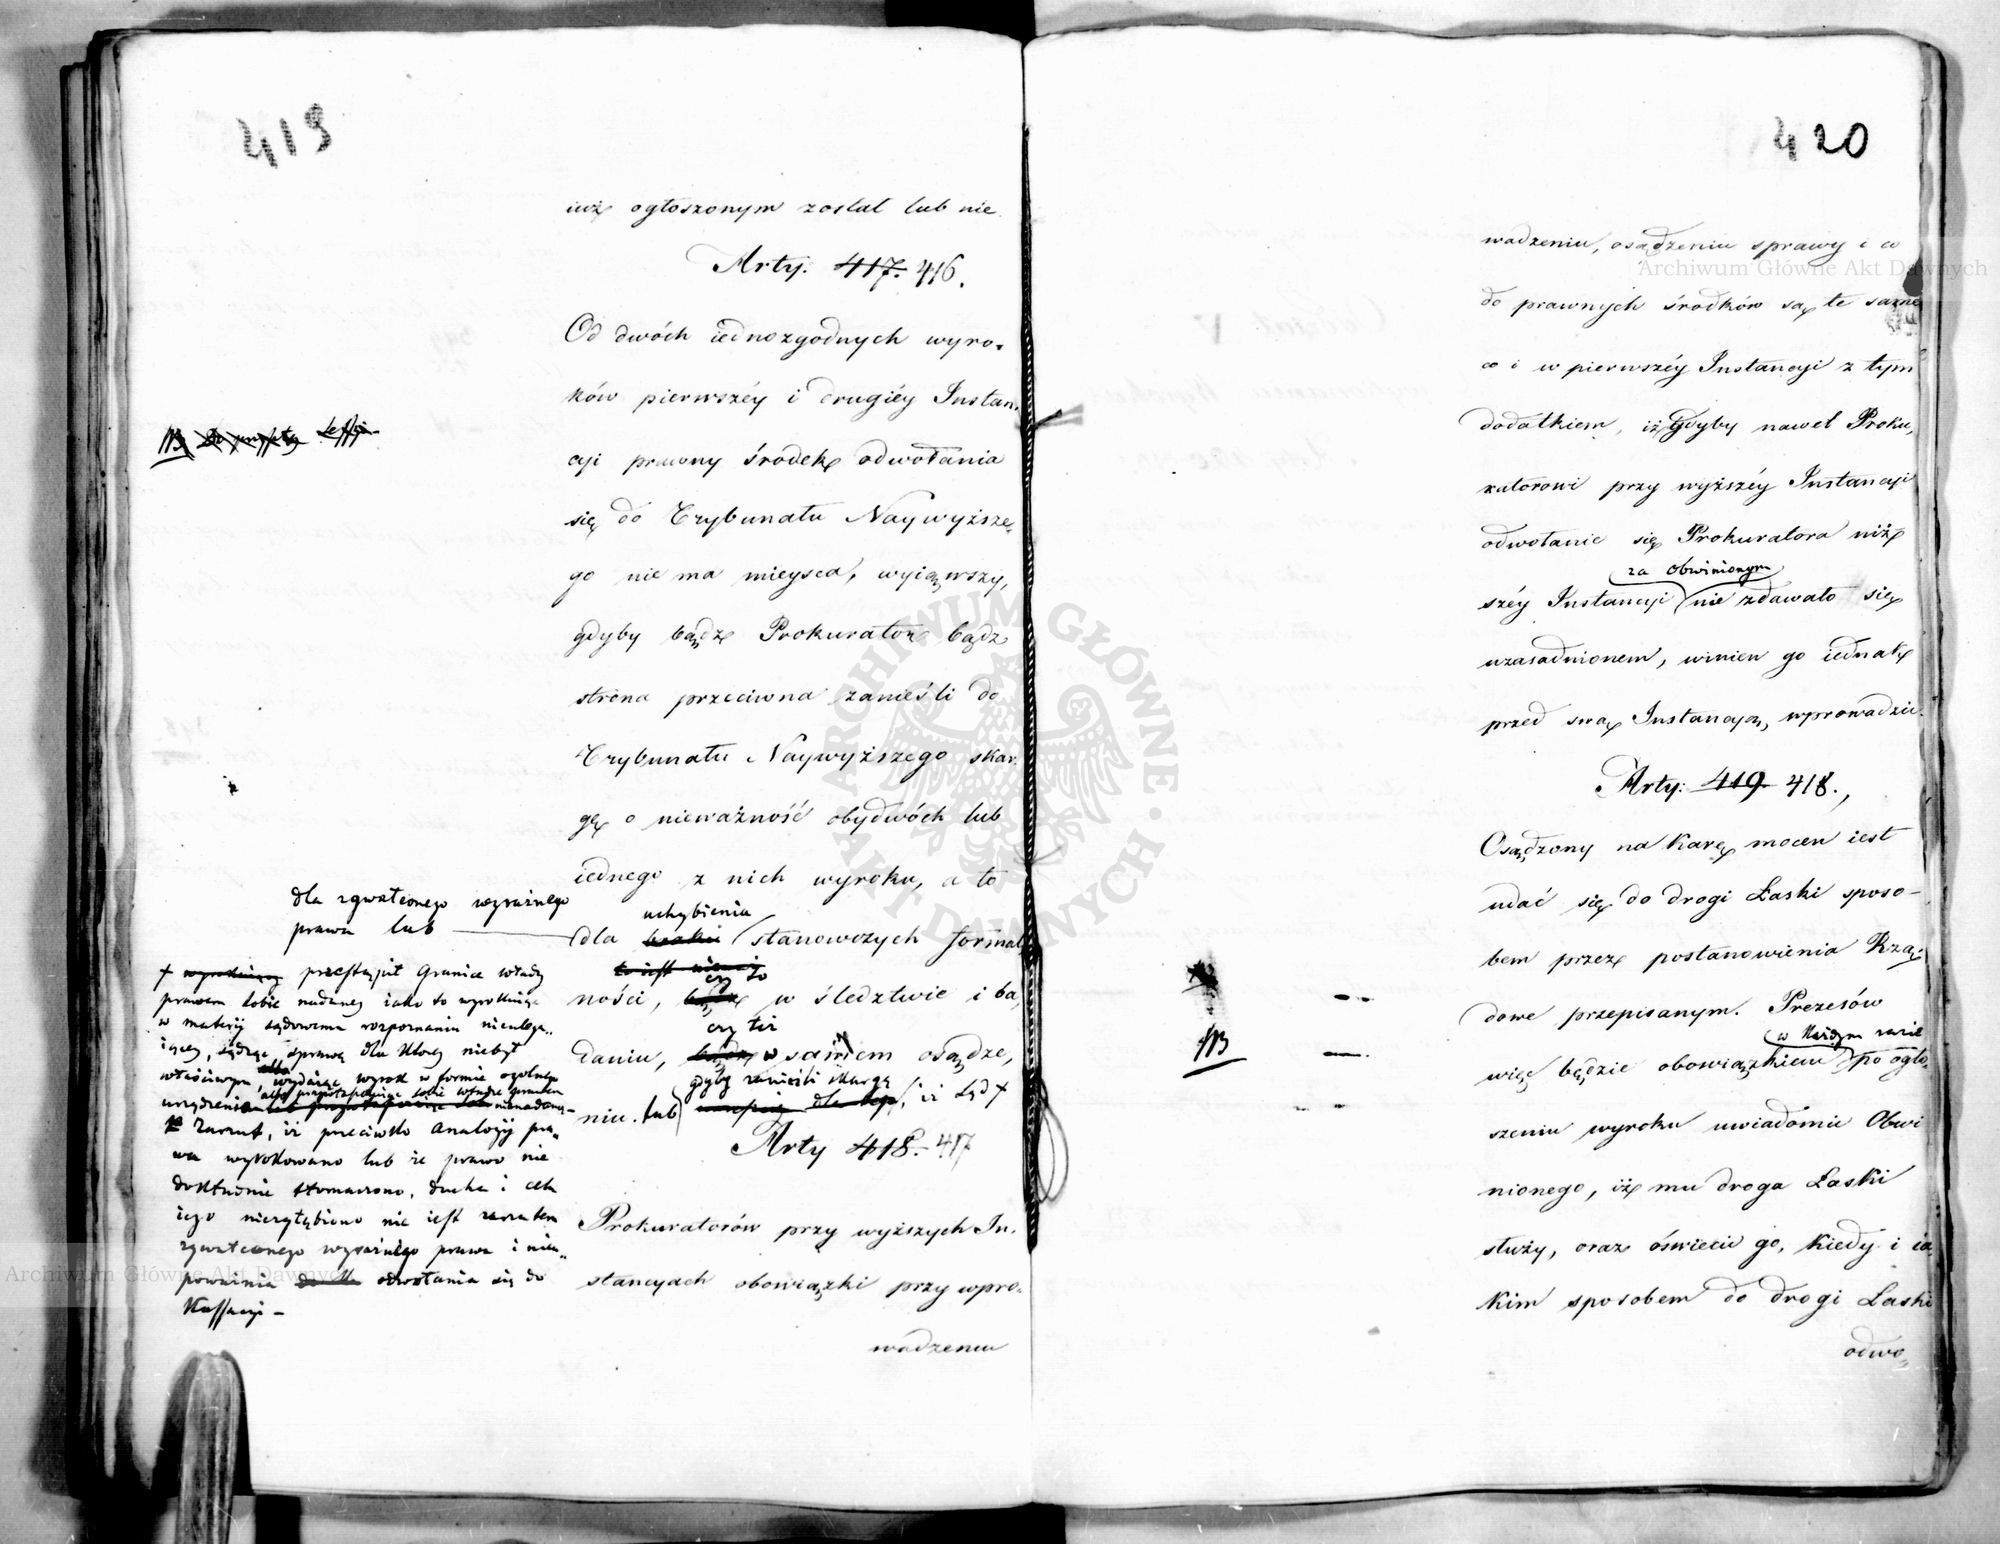 419
iuż ogłoszonym został lub nie
Arty: 417. 416.
Od dwóch iednozgodnych wyro-
ków pierwszéy i drugiéy Instan-
cyi prawny środek odwołania
się do Trybunału Naywyższe-
go nie ma mieysca, wyiąwszy,
gdyby bądź Prokurator bądz
strona przeciwna zanieśli do
Trybunału Naywyższego skar-
gę o nieważność obydwóch lub
iednego z nich wyroku, a to
uchybienia
dla braku stanowczych formal
to iest
czy to
ności, bądź w śledztwie i ba,
czy też
daniu, bądź w samem osądze,
gdyby zanieśli skargę
niu. lub , iż Sąd +
Arty 418. 417
Prokuratorów przy wyższych In-
stancyach obowiązki przy wpro-
wadzeniu
NB
dla zgwałconego wyraźnego
prawa lub
+ przestąpił Granice władzy
prawem sobie nadaney iako to wyrokuiąc
w materyi sądowemu rozpoznaniu nieulega-
iącey, sądząc sprawę dla którey niebył
właściwym, albo wydaiąc wyrok w formie ogólnego
albo przywłaszczaiąc sobie władzę prawem
urządzenia nienadaną
Zarzut, iż przeciwko Analogii pra-
wa wyrokowano lub że prawo nie
dokładnie tłomaczono, ducha i celu
iego niezgłębiono nie iest zarzutem
zgwałconego wyraźnego prawa i nieu-
poważnia do odwołania się do
Kassacyi -
420
wadzeniu, osądzeniu sprawy i co
do prawnych środków są te same
co i w pierwszéy Instancyi z tym
dodatkiem, iż gdyby nawet Proku,
ratorowi przy wyższéy Instancyi
odwołanie się Prokuratora niż
za obwinionym
széy Instancyi nie zdawało się
uzasadnionem, winien go iednak
przed swą Instancyą wprowadzić.
Arty: 419. 418.
Osądzony na karę mocen iest
udać się do drogi Łaski sposo-
bem przez postanowienia Rzą-
dowe przepisanym. Prezesów
w każdym razie
więc będzie obowiązkiem po ogło-
szeniu wyroku uwiadomić Obwi
nionego, iż mu droga Łaski
służy, oraz oświecić go, kiedy i ia
kim sposobem do drogi Łaski
odwo-
NB
Archiwum Główne Akt Dawnych
Archiwum Główne Akt Dawnych
ARCHIWUM GŁÓWNE AKT DAWNYCH